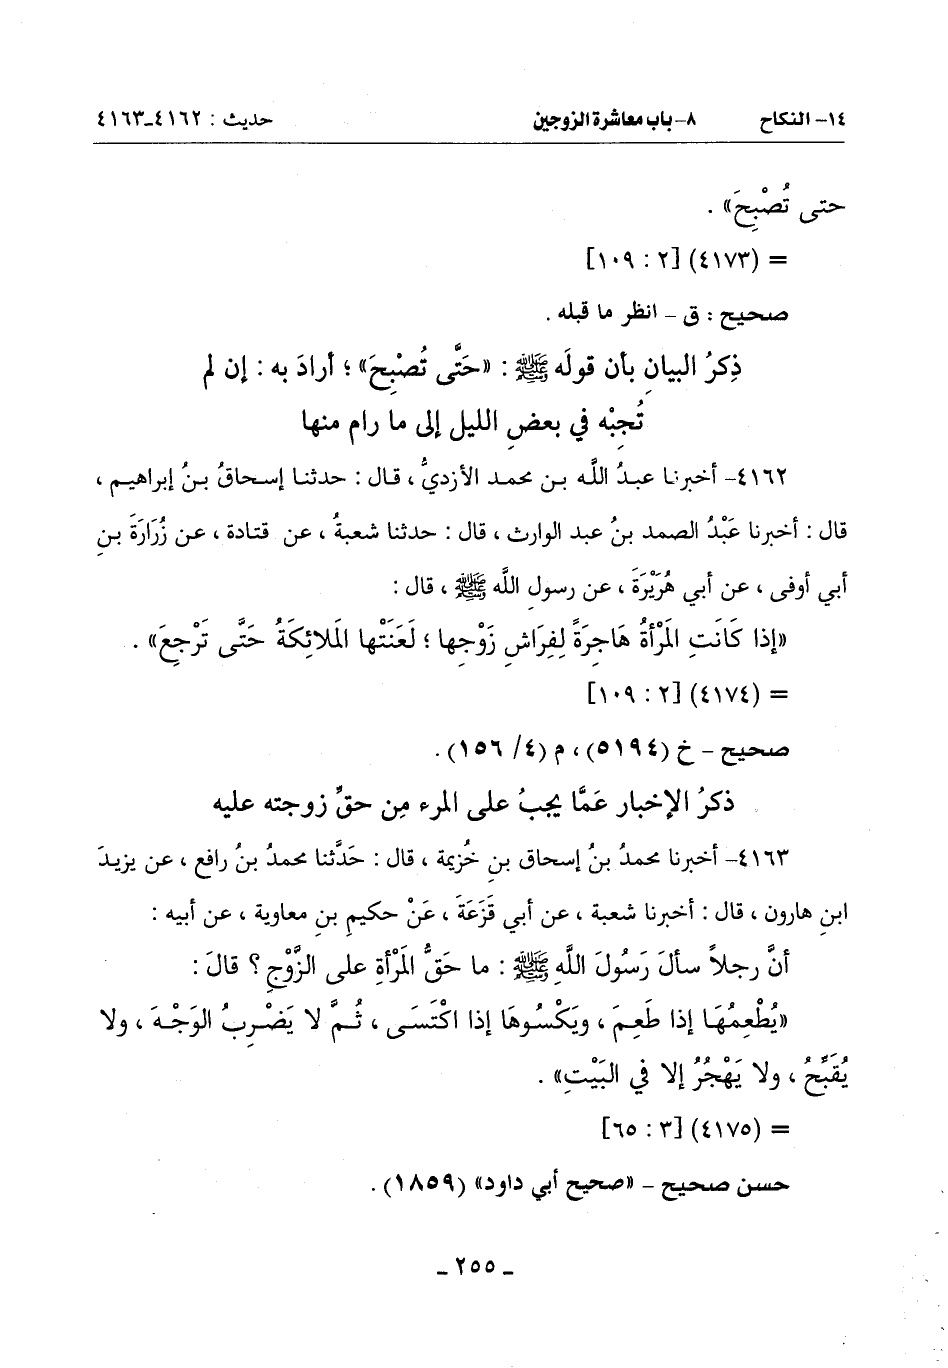 ١٤- النكاح ٨- باب معاشرة الزوجين حديث : ٤١٦٢-٤١٦٣
حتى تُصْبِحَ» .
= (٤١٧٣) [٢ : ١٠٩]
صحيح : ق - انظر ما قبله .
ذِكرُ البيانِ بأن قولَه ﷺ : «حَتَّى تُصْبِحَ» ؛ أرادَ به : إن لم
تُجِبْه في بعضِ الليل إلى ما رام منها
٤١٦٢- أخبرنا عبدُ اللَّه بن محمد الأزديُّ ، قال : حدثنا إسحاقُ بنُ إبراهيم ،
قال : أخبرنا عَبْدُ الصمد بنُ عبد الوارث ، قال : حدثنا شعبةُ ، عن قتادة ، عن زُرَارَةَ بنِ
أبي أوفى ، عن أبي هُرَيْرَةَ ، عن رسولِ اللَّه ﷺ ، قال :
«إذا كَانَتِ المَرْأةُ هَاجِرَةً لِفِرَاشِ زَوْجِها ؛ لَعَنَتْها المَلائِكَةُ حَتَّى تَرْجِعَ» .
= (٤١٧٤) [٢ : ١٠٩]
صحيح - خ (٥١٩٤) ، م (٤/ ١٥٦) .
ذكرُ الإخبار عَمَّا يجبُ على المرء مِن حقِّ زوجته عليه
٤١٦٣- أخبرنا محمدُ بنُ إسحاق بنِ خُزيمة ، قال : حَدَّثنا محمدُ بنُ رافع ، عن يزيدَ
ابنِ هارون ، قال : أخبرنا شعبة ، عن أبي قَزَعَةَ ، عَنْ حكيمِ بنِ معاوية ، عن أبيه :
أنَّ رجلاً سألَ رَسُولَ اللَّهِ ﷺ : ما حَقُّ المَرْأةِ على الزَّوْجِ ؟ قالَ :
«يُطْعِمُهَا إذا طَعِمَ ، ويَكْسُوهَا إذا اكْتَسَى ، ثُمَّ لا يَضْرِبُ الوَجْهَ ، ولا
يُقَبِّحُ ، ولا يَهْجُرُ إلا في البَيْتِ» .
= (٤١٧٥) [٣ : ٦٥]
حسن صحيح - «صحيح أبي داود» (١٨٥٩) .
ـ ٢٥٥ ـ